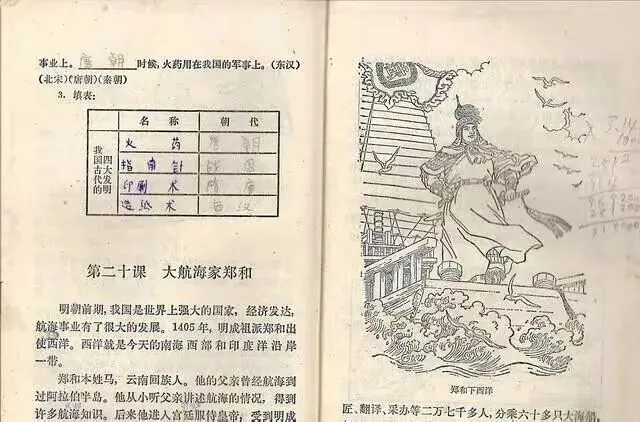 事业上。唐朝时候，火药用在我国的军事上。(东汉)
(北宋)(唐朝)(秦朝)
3. 填表：
名 称 朝 代
我国古代的四大发明
火 药 唐 朝
指 南 针 战 国
印刷 术 隋 唐
造纸 术 西 汉
第二十课 大航海家郑和
明朝前期，我国是世界上强大的国家，经济发达，
航海事业有了很大的发展。1405年，明成祖派郑和出
使西洋。西洋就是今天的南海西部和印度洋沿岸
一带。
郑和本姓马，云南回族人。他的父亲曾经航海到
过阿拉伯半岛。他从小听父亲讲述航海的情况，得到
许多航海知识。后来他进入宫廷服侍皇帝，受到明成
3.14
郑和下西洋
匠、翻译、采办等二万七千多人，分乘六十多只大海船，